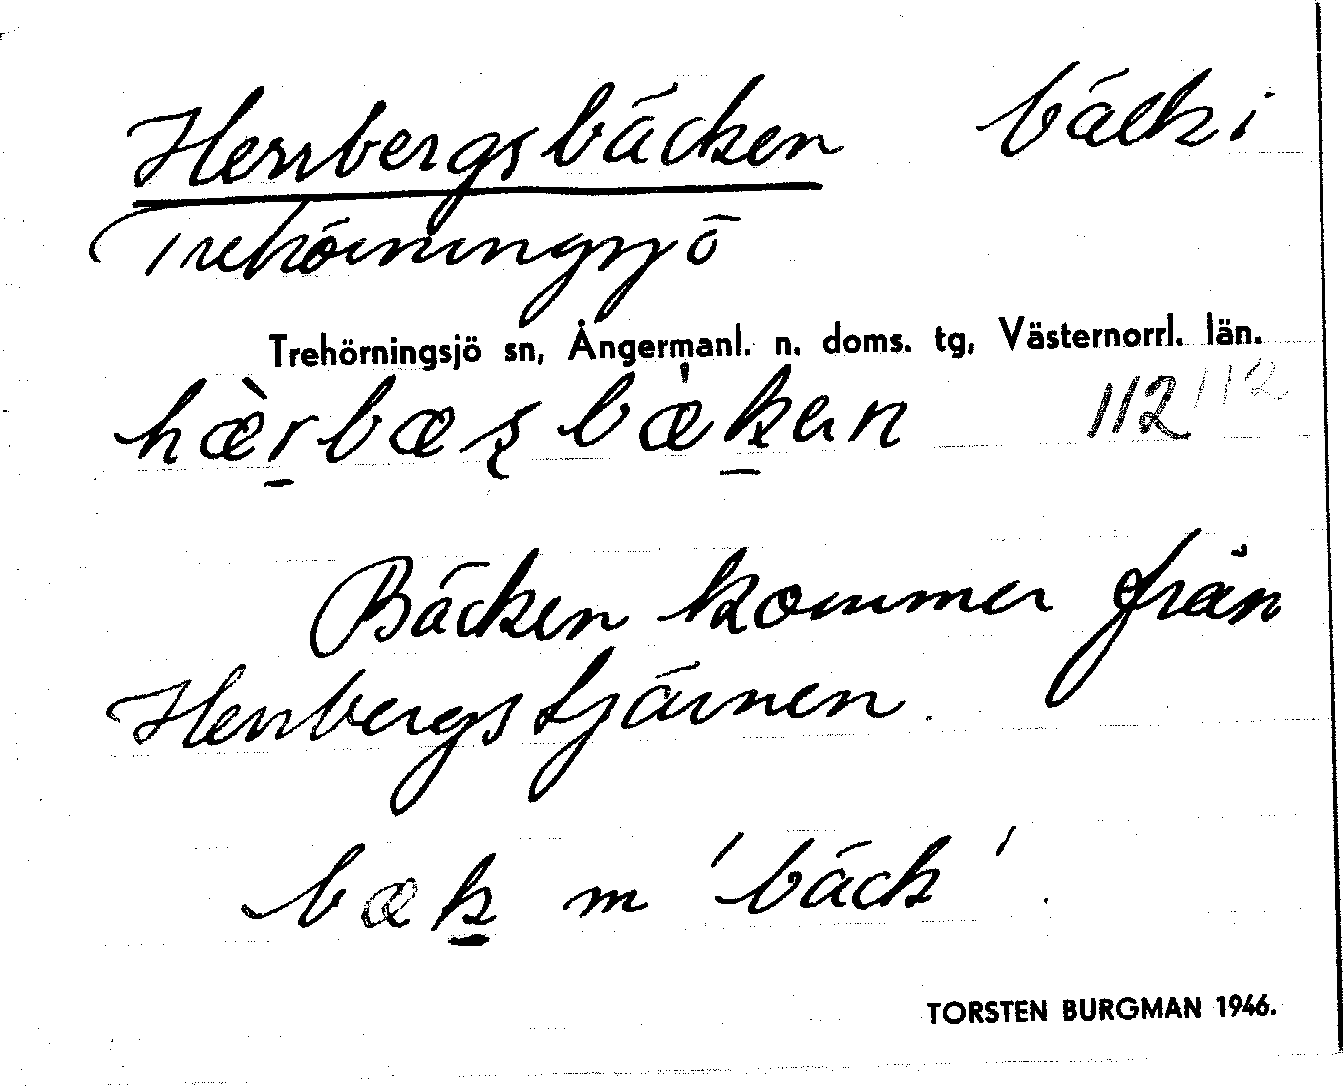 Herrbergsbäcken bäck i
Trehörningsjö
Trehörningsjö sn, Ångermanl. n. doms. tg, Västernorrl. län.
hæ̀r̲bæʂbæ̍k̲ən 112 112
Bäcken kommer från
Herrbergstjärnen.
bæk̲ m 'bäck'.
TORSTEN BURGMAN 1946.